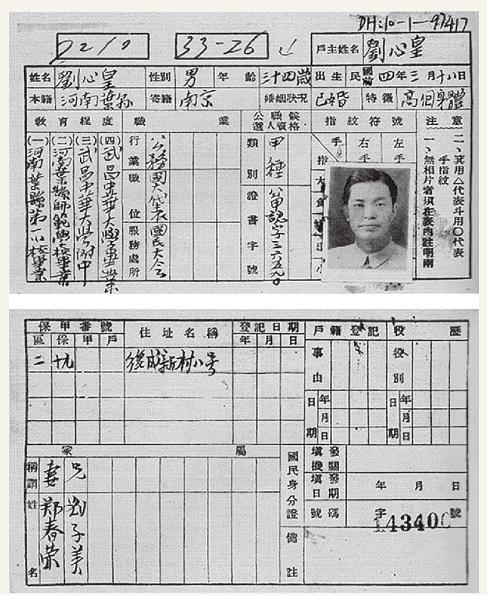 DH:10-1-97417
2210
33-26
戶主姓名 劉心皇
姓名 劉心皇 性別 男 年齡 三十四歲 出生 民國前 四年三月十八日
本籍 河南葉縣 寄籍 南京 婚姻狀況 已婚 特徵 高個身體
教育程度
(一)河南葉縣第一小校畢業
(二)河南葉縣師範學校畢業
(三)武昌中華大學附中
(四)武昌中華大學畢業
職業
行業 公務
職位 國大代表
服務處所 國民大會
公職候選人資格
類別 甲種
證書字號
指紋符號
手 右手 左手
指
注意
一、無相片者須在表內註明兩手指紋
二、箕用△代表斗用○代表
保甲番號 住址名稱 登記日期
區 保 甲 戶 年 月 日
二 十九 後成新村八号
戶籍登記 役歷
事由 役別
年月日期 年月日期
家屬
稱謂 妻 兄
姓名 郑春荣 劉子美
國民身分證
填發機關
填發日期 年 月 日
號碼 字 143400 號
備註